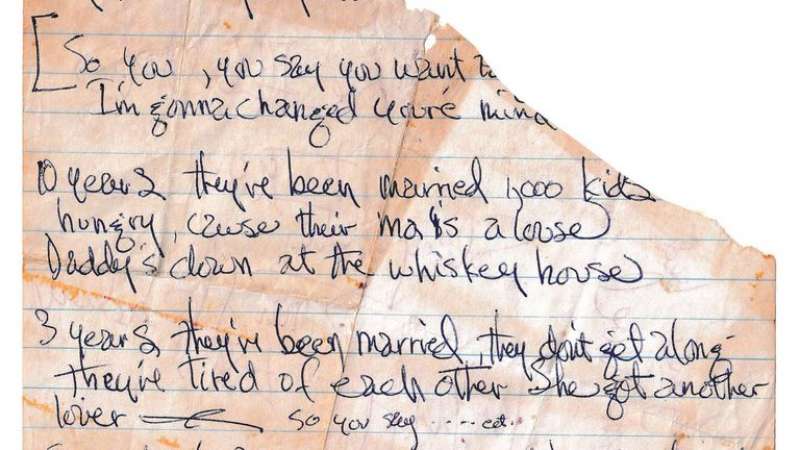 So you, you say you want
I'm gonna changed youre mind
10 years they've been married 1,000 kids
hungry, cause their ma is a louse
Daddy's down at the whiskey house
3 years they've been married, they don't get along
they're tired of each other She got another
lover
so you say ..... ect.